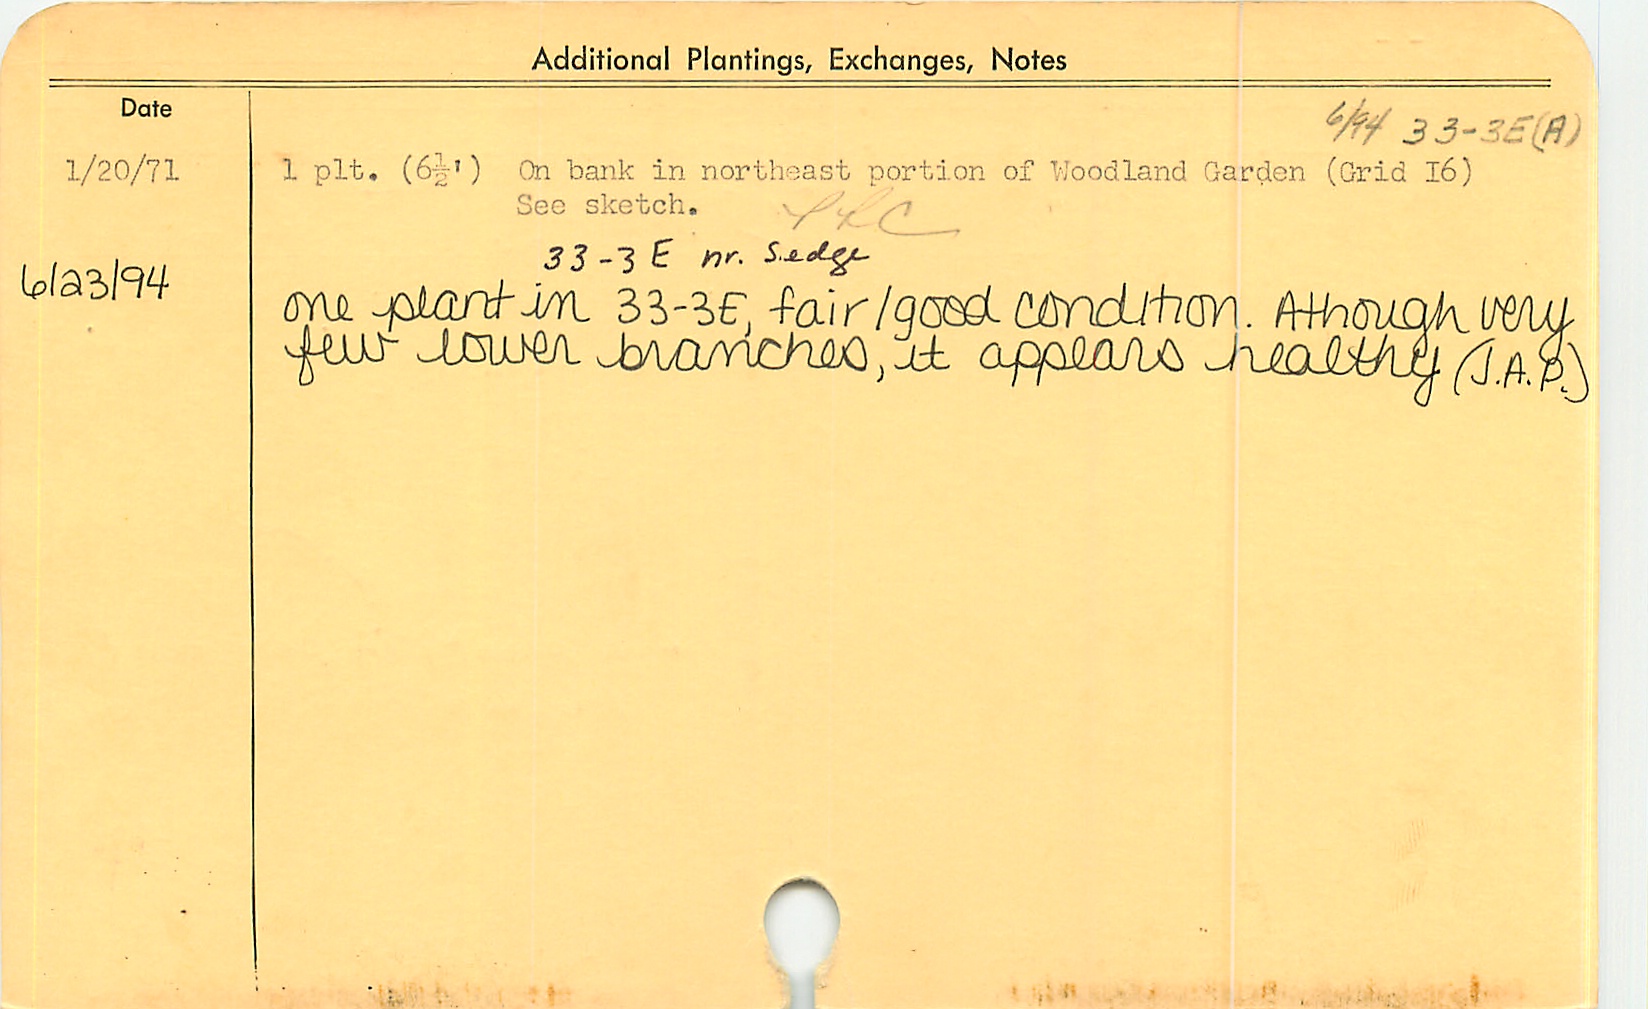 Additional Plantings, Exchanges, Notes
Date
6/94 33-3E(A)
1/20/71 1 plt. (6½') On bank in northeast portion of Woodland Garden (Grid I6)
See sketch.
33-3E nr. S.edge
6/23/94
one plant in 33-3E, fair/good condition. Athough very
few lower branches, it appears healthy (J.A.P.)